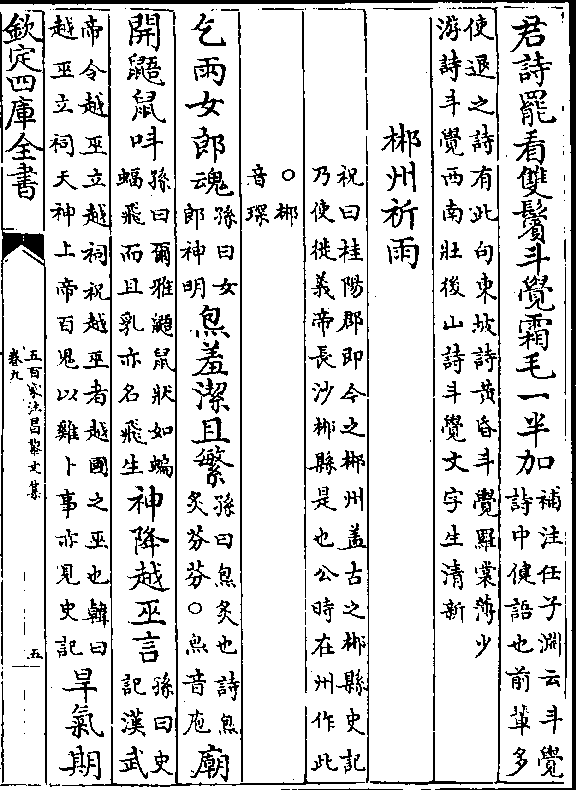 君詩罷看雙鬢斗覺霜毛一半加補注任子淵云斗覺詩中健語也前輩多
使退之詩有此句東坡詩黄昏斗覺羅裳薄少游詩斗覺西南壯後山詩斗覺文字生清新
郴州祈雨
祝曰桂陽郡即今之郴州盖古之郴縣史記乃使徙義帝長沙郴縣是也公時在州作此
○郴音琛
乞雨女郎魂孫曰女郎神明炰羞潔且繁孫曰炰炙也詩炰炙芬芬○炰音庖廟
開鼯鼠呌孫曰爾雅鼯鼠狀如蝙蝠飛而且乳亦名飛生神降越巫言孫曰史記漢武
帝令越巫立越祠祝越巫者越國之巫也韓曰越巫立祠天神上帝百鬼以雞卜事亦見史記旱氣期
欽定四庫全書
五百家注昌黎文集
卷九
五